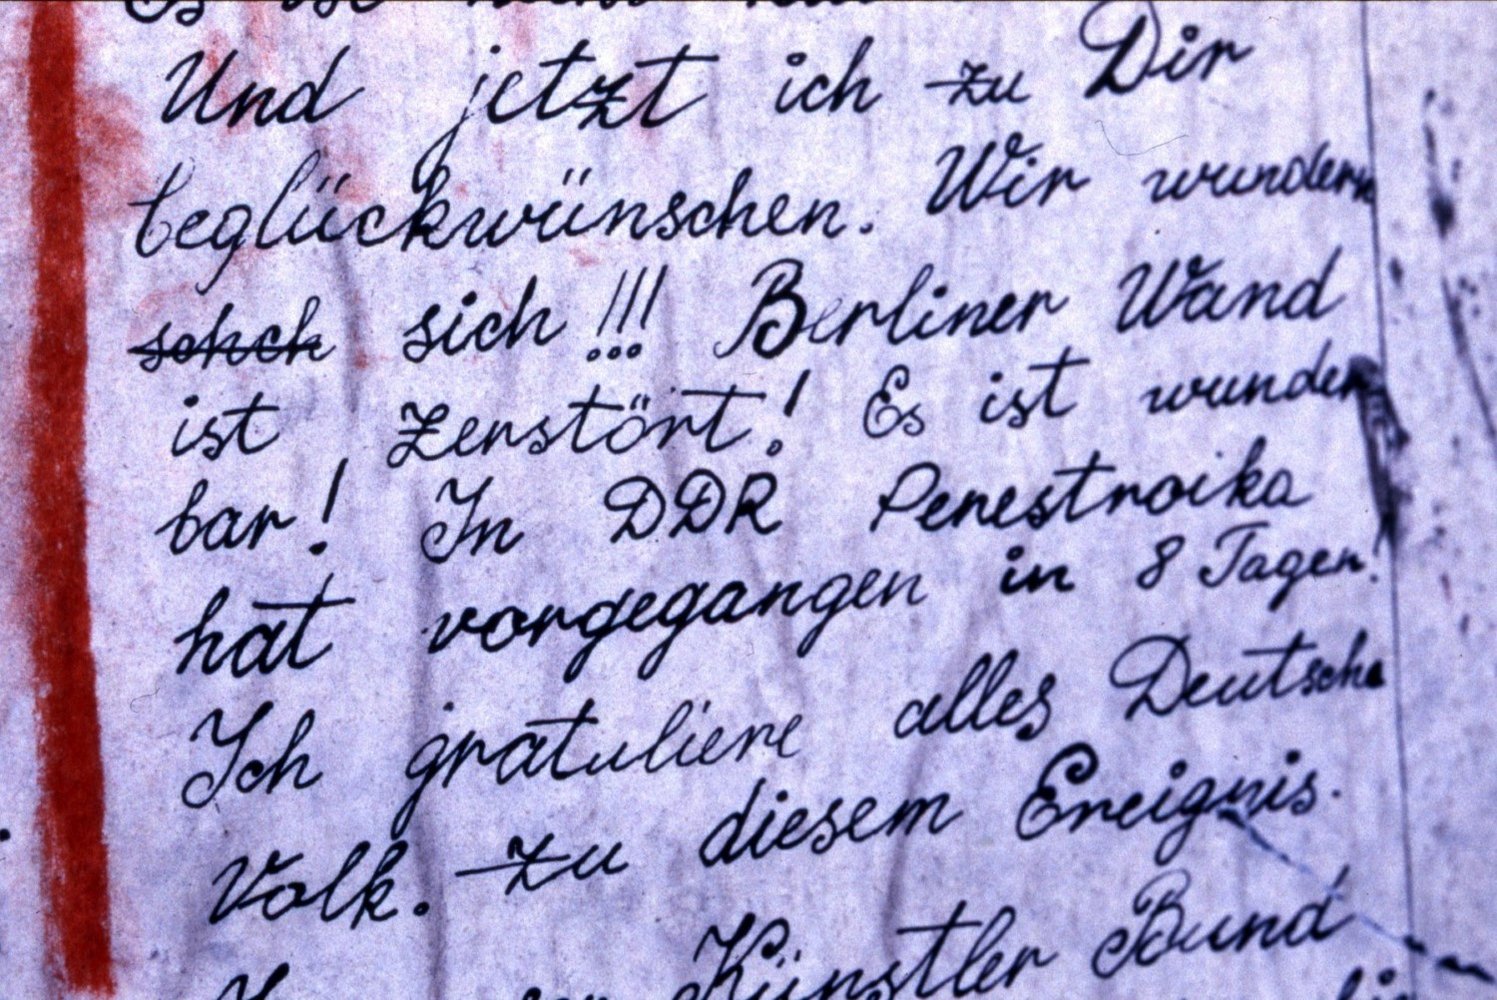 Es ist
Und jetzt ich zu Dir
beglückwünschen. Wir wundern
schch sich!!! Berliner Wand
ist zerstört! Es ist wunder
bar! In DDR Perestroika
hat vorgegangen in 8 Tagen!
Ich gratuliere alles Deutsche
Volk. zu diesem Ereignis.
Künstler Bund